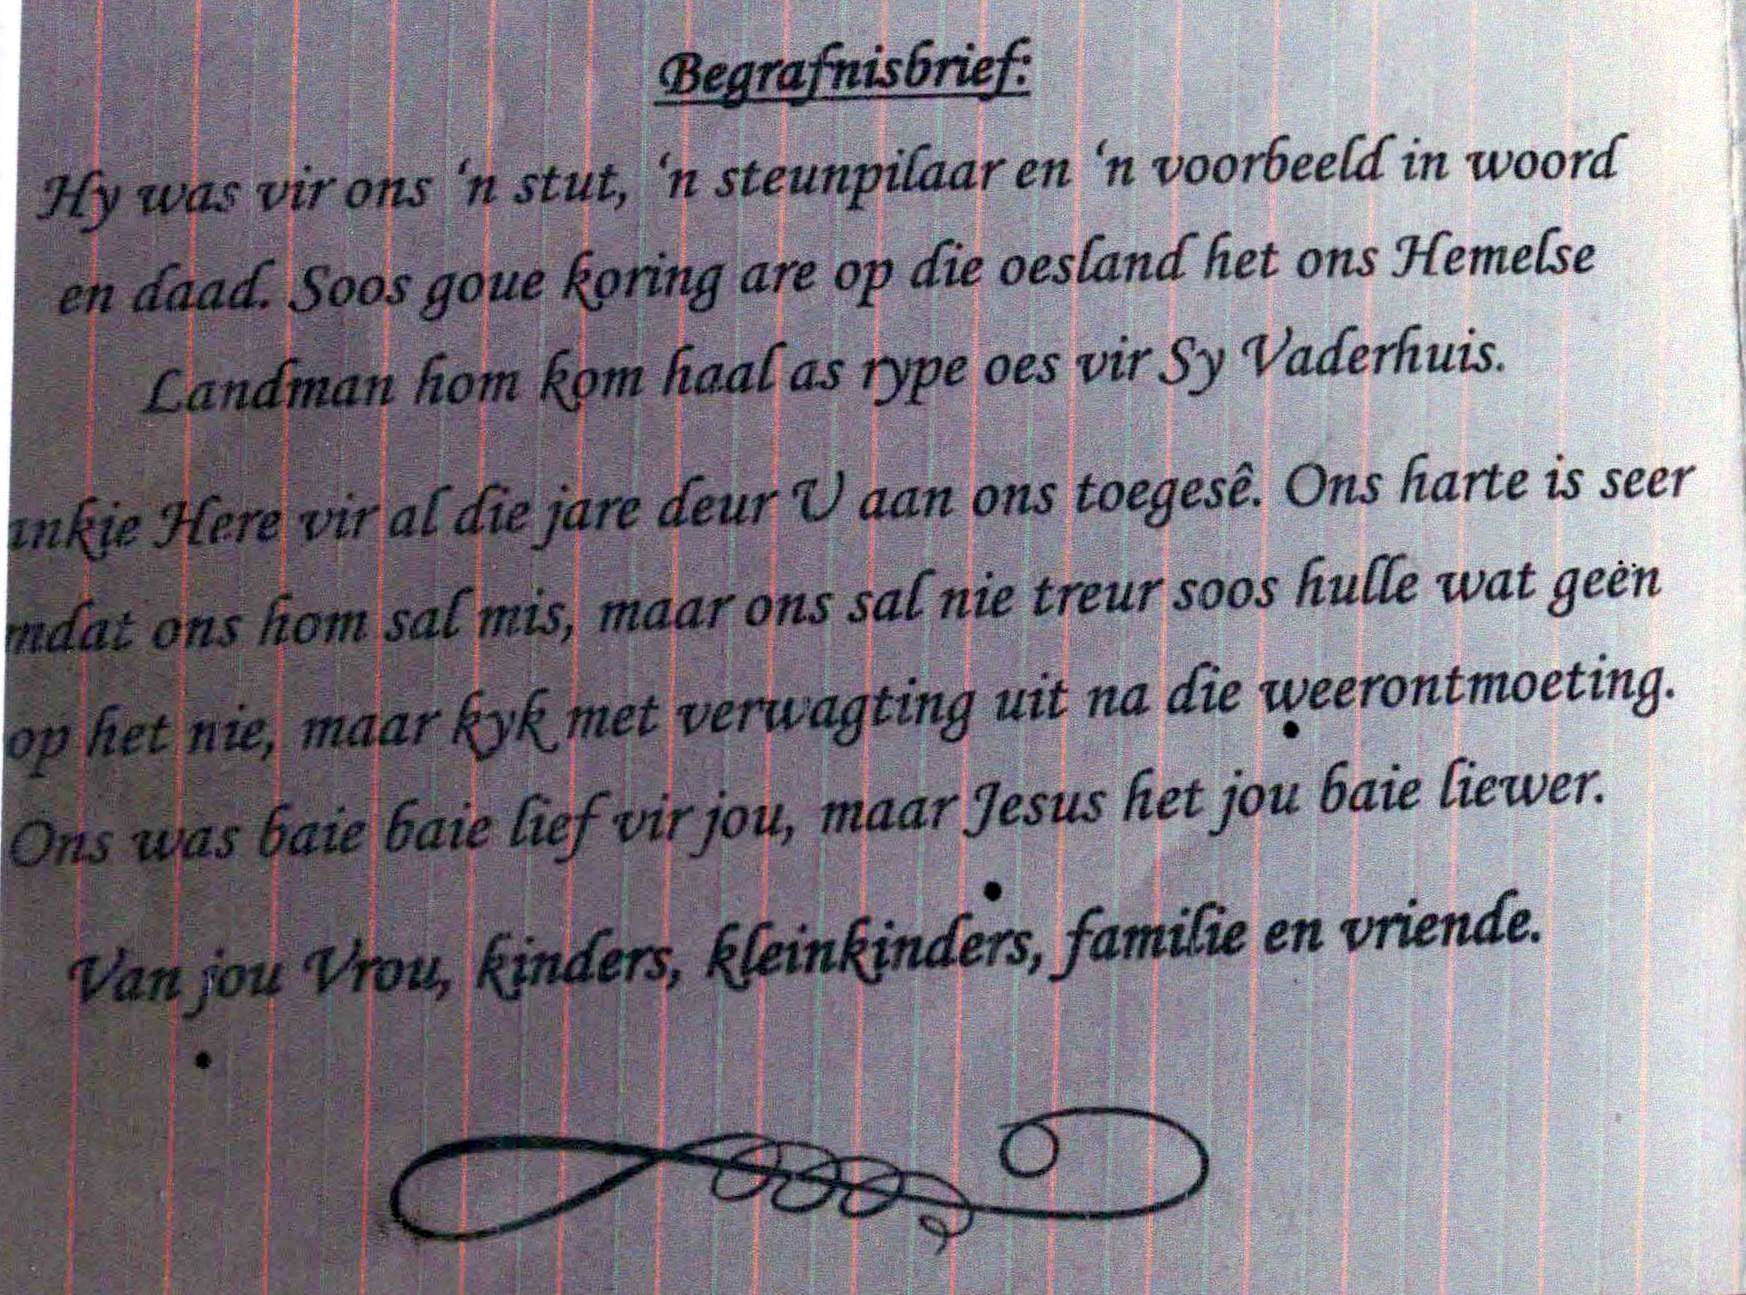 Begrafnisbrief:
Hy was vir ons 'n stut, 'n steunpilaar en 'n voorbeeld in woord
en daad. Soos goue koring are op die oesland het ons Hemelse
Landman hom kom haal as rype oes vir Sy Vaderhuis.
ankie Here vir al die jare deur U aan ons toegesê. Ons harte is seer
mdat ons hom sal mis, maar ons sal nie treur soos hulle wat geèn
op het nie, maar kyk met verwagting uit na die weerontmoeting.
Ons was baie baie lief vir jou, maar Jesus het jou baie liewer.
Van jou Vrou, kinders, kleinkinders, familie en vriende.